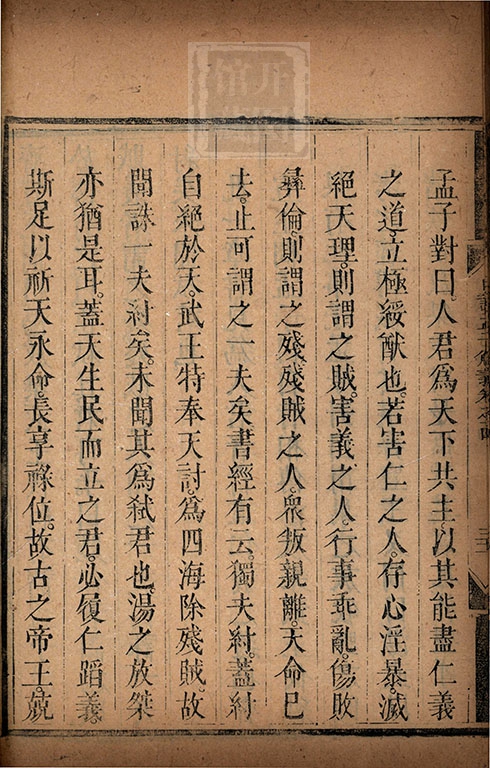 孟子對曰。人君爲天下共主。以其能盡仁義
之道。立極綏猷也。若害仁之人。存心淫暴。滅
絕天理。則謂之賊。害義之人。行事乖亂。傷敗
彝倫。則謂之殘。殘賊之人。衆叛親離。天命已
去。止可謂之一夫矣。書經有云。獨夫紂。蓋紂
自絕於天。武王特奉天討。爲四海除殘賊。故
聞誅一夫紂矣。未聞其爲弑君也。湯之放桀
亦猶是耳。蓋天生民而立之君。必履仁蹈義。
斯足以祈天永命。長享祿位。故古之帝王。兢